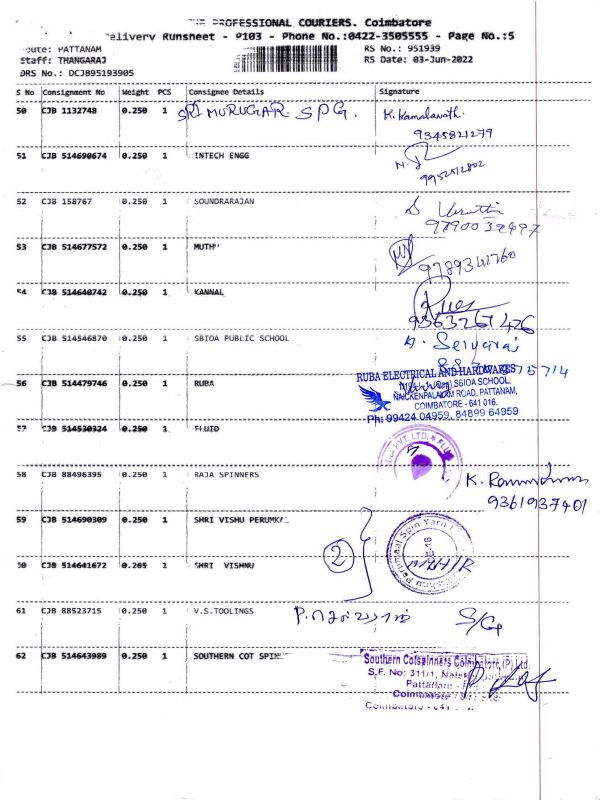 THE PROFESSIONAL COURIERS. Coimbatore
elivery Runsheet - P103 - Phone No.:0422-3505555 - Page No.:5
oute: PATTANAM
RS No.: 951939
Staff: THANGARAJ
RS Date: 03-Jun-2022
DRS No.: DCJB95193905
S No Consignment No Weight PCS Consignee Details Signature
50 CJB 1132748 0.250 1 SRI MURUGAR SPG. K. Kamalanath.
9345821279
51 CJB 514690674 0.250 1 INTECH ENGG
9952512802
52 CJB 158767 0.250 1 SOUNDRARAJAN
9790032497
53 CJB 514677572 0.250 1 MUTH
9789341760
54 CJB 514640742 0.250 1 KANNAL
9363267426
55 CJB 514546870 0.250 1 SBIOA PUBLIC SCHOOL
56 CJB 514479746 0.250 1 RUBA
RUBA ELECTRICAL AND HARDWARES
SBIOA SCHOOL,
NAICKENPALAYAM ROAD, PATTANAM,
COIMBATORE - 641 016.
Ph: 99424 04959, 84899 64959
57 CJB 514530324 0.250 1 FLUID
PVT. LTD.
58 CJB 88496395 0.250 1 RAJA SPINNERS
9361937401
59 CJB 514690309 0.250 1 SHRI VISHU PERUMAL
60 CJB 514641672 0.265 1 SHRI VISHNU
2
61 CJB 88523715 0.250 1 V.S.TOOLINGS
62 CJB 514643989 0.250 1 SOUTHERN COT SPIN
Southern Cotspinners Coimbatore (P) Ltd.
S.F. No: 311/1,
Pattanam
Coimbatore